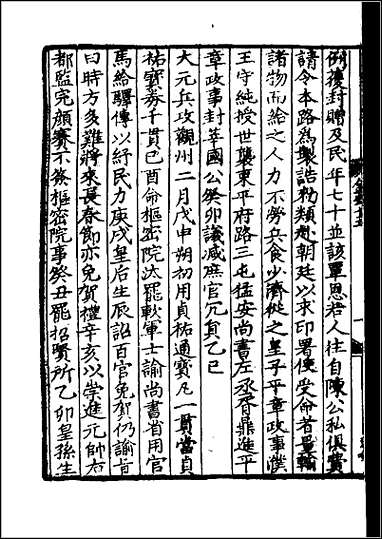 例復封贈及民年七十並該覃恩若人往自陳公私俱費
請令本路為製誥勅類赴朝廷以求印署使受命者量輸
諸物而給之人力不勞兵食少濟從之皇子平章政事濮
王守純授世襲東平府路三屯猛安尚書左丞胥鼎進平
章政事封莘國公癸卯議減庶官冗員乙巳
大元兵攻觀州二月戊申朔初用貞祐通寶凡一貫當貞
祐寶券千貫己酉命樞密院汰罷軟軍士諭尚書省用官
馬給驛傳以紓民力庚戌皇后生辰詔百官免賀仍諭旨
曰時方多難將來長春節亦免賀禮辛亥以崇進元帥右
都監完顏賽不簽樞密院事癸丑罷招賢所乙卯皇孫生